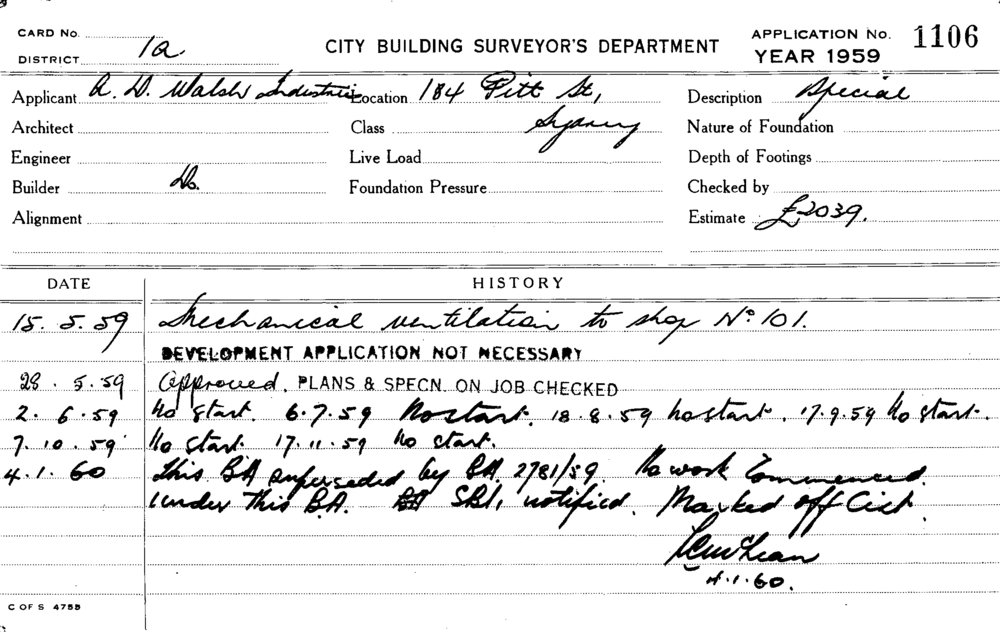 CARD No.
DISTRICT 1a
CITY BUILDING SURVEYOR'S DEPARTMENT
APPLICATION No. 1106
YEAR 1959
Applicant A. D. Walsh Industries Location 184 Pitt St, Description Special
Architect Class Sydney Nature of Foundation
Engineer Live Load Depth of Footings
Builder Do. Foundation Pressure Checked by
Alignment Estimate £2039.
DATE HISTORY
15. 5. 59 Mechanical ventilation to shop No. 101.
DEVELOPMENT APPLICATION NOT NECESSARY
28. 5. 59 Approved. PLANS & SPECN. ON JOB CHECKED
2. 6. 59 No start. 6.7.59 No start. 18.8.59 No start. 17.9.59 No start.
7. 10. 59 No start. 17.11.59 No start.
4. 1. 60 This BA superseded by BA. 2781/59. No work Commenced
under this B.A. notified. Marked off
4.1.60.
C OF S 4758